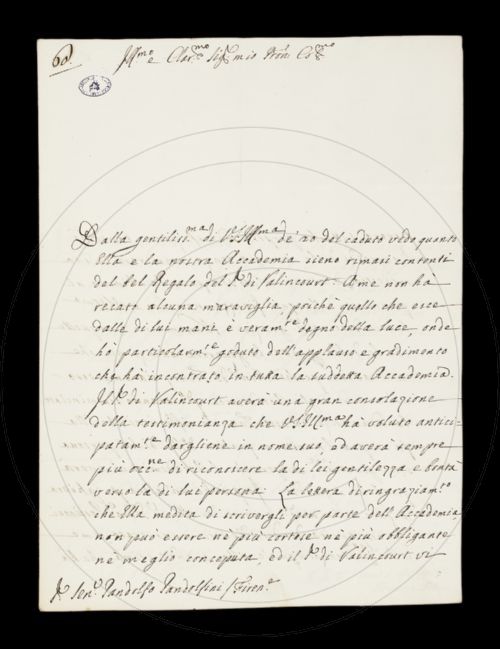 60.
Ill.mo e Clar.mo Sig.r mio Pron. Col.mo
Dalla gentiliss.ma di V.S. Ill.ma de' 20 del caduto vedo quanto
Ella e la nostra Accademia sieno rimasi contenti
del bel Regalo del S.r di Valincourt. A me non hà
recato alcuna maraviglia, poiche quello che esce
dalle di lui mani è veram.te degno della luce, onde
hò particolarm.te goduto dell'applauso e gradimento
che hà incontrato in tutta la suddetta Accademia.
Il S.r di Valincourt averà una gran consolazione
della testimonianza che V.S. Ill.ma hà voluto antici-
patam.te dargliene in nome suo, ed averà sempre
più occ.ne di riconoscere la di lei gentilezza e bontà
verso la di lui persona. La lettera di ringraziam.to
che Ella medita di scrivergli per parte dell'Accademia,
non può essere nè più cortese nè più obbligante
ne meglio conceputa, ed il S.r di Valincourt vi
S.r Sen.re Pandolfo Pandolfini / Firen.e